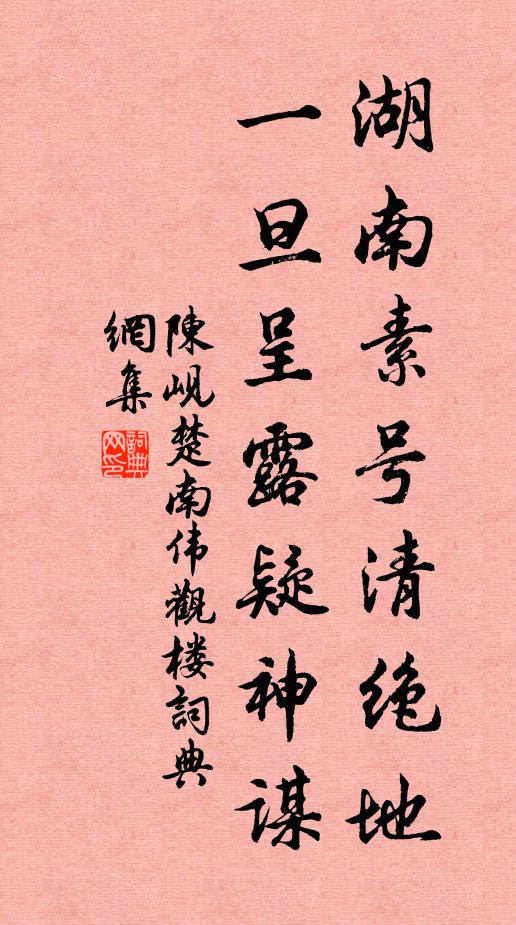 湖南素号清绝地
一旦呈露疑神谋
陳峴楚南伟觀楼詞典
網集
詞典网印